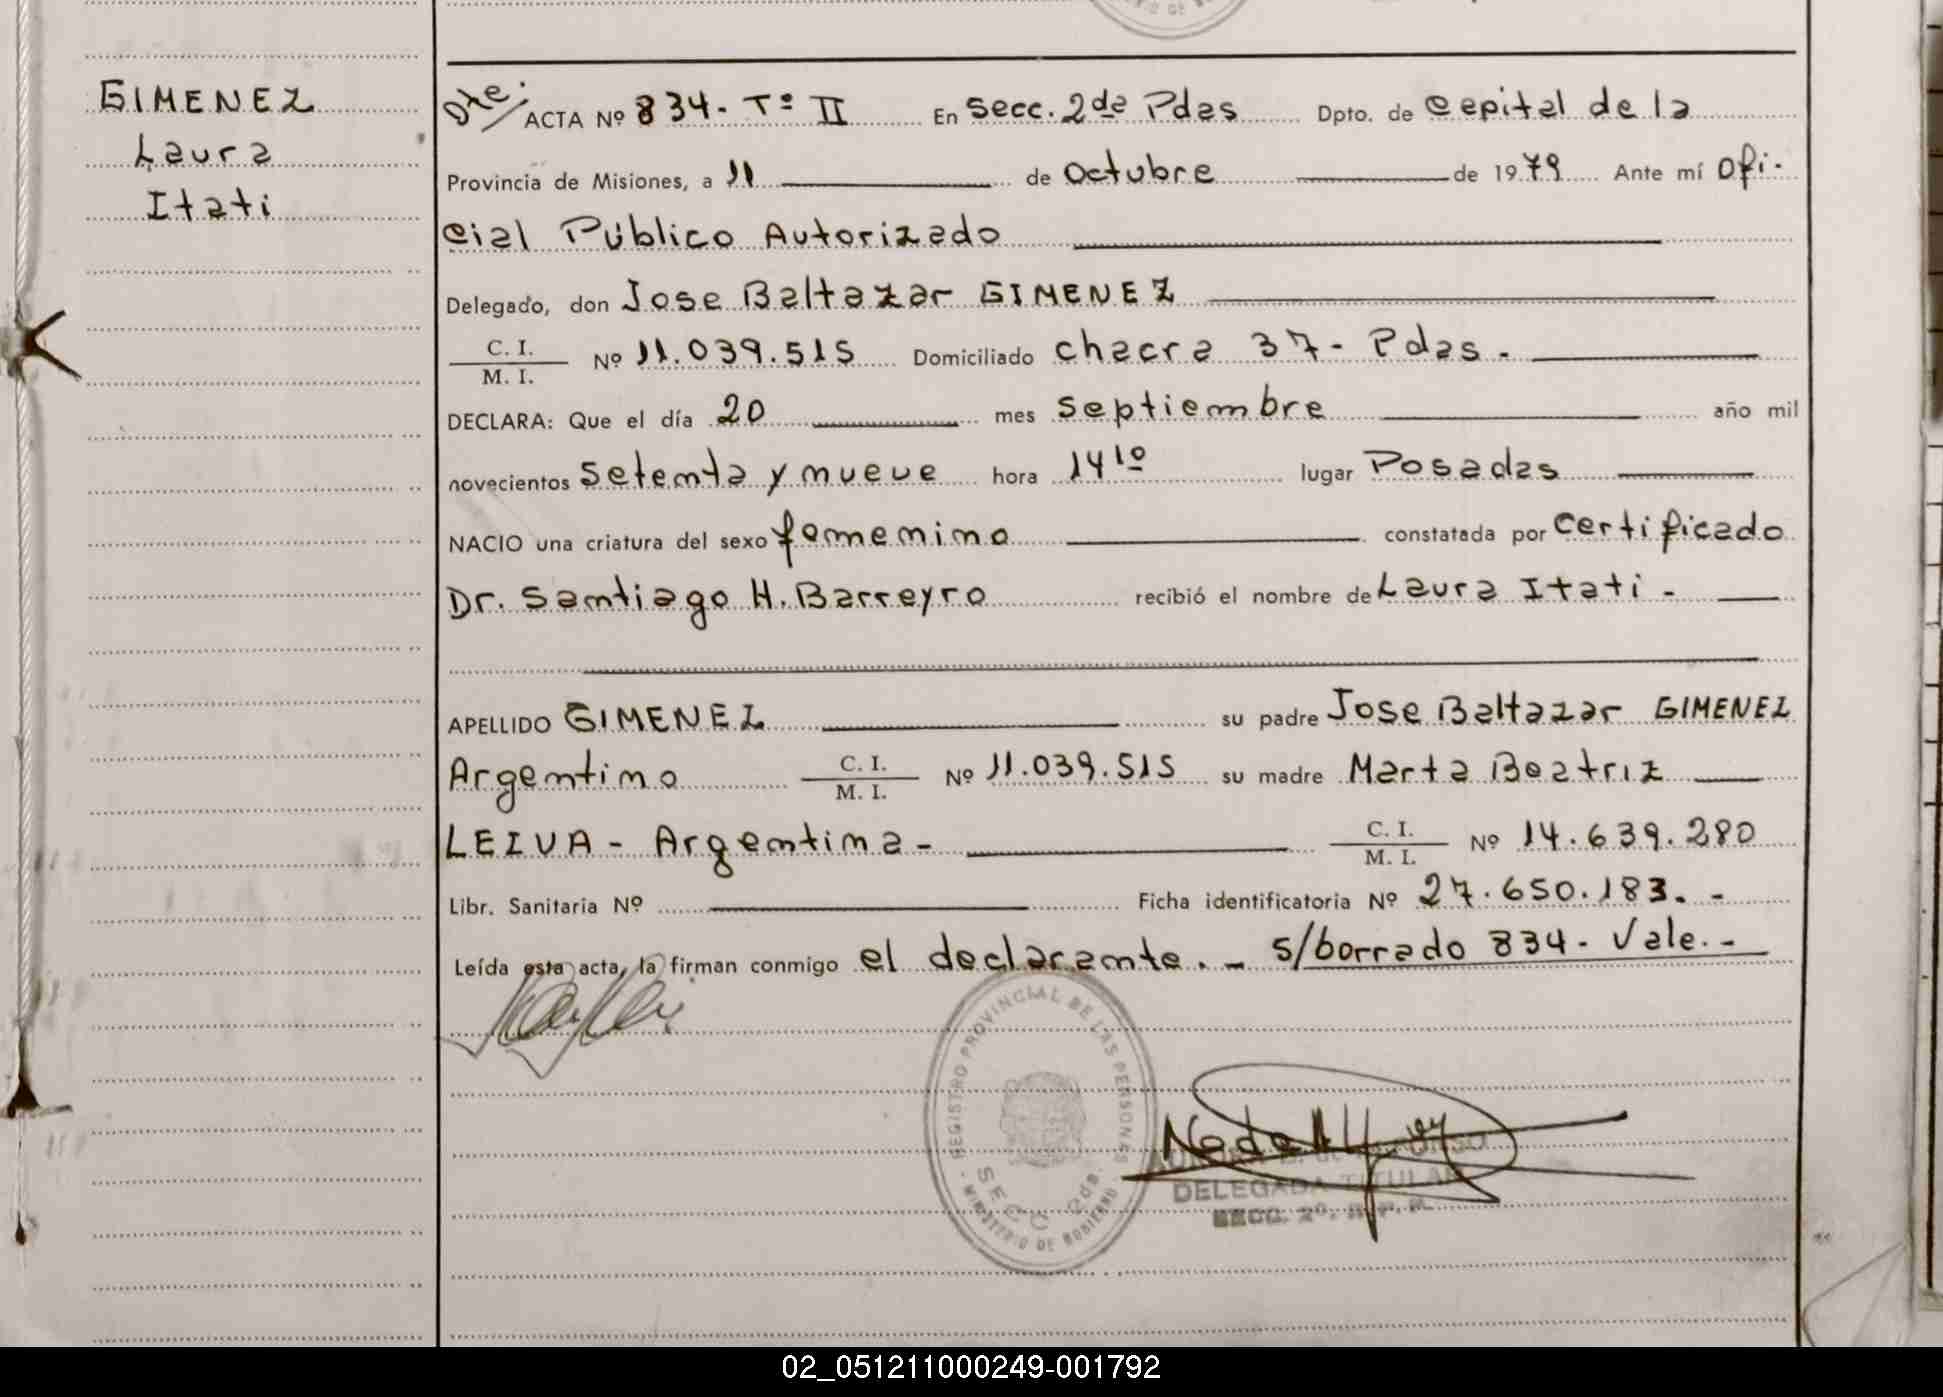 GIMENEZ
Laura
Itati
Dte: ACTA Nº 834- Tº II En Secc. 2da Pdas Dpto. de Capital de la
Provincia de Misiones, a 11 de Octubre de 1979 Ante mí Ofi-
cial Público Autorizado
Delegado, don Jose Baltazar GIMENEZ
C. I.
M. I.
Nº 11.039.515 Domiciliado chacra 37- Pdas.
DECLARA: Que el día 20 mes septiembre año mil
novecientos setenta y nueve hora 14 10 lugar Posadas
NACIO una criatura del sexo femenino constatada por certificado
Dr. Santiago H. Barreyro recibió el nombre de Laura Itati -
APELLIDO GIMENEZ su padre Jose Baltazar GIMENEZ
Argentino C. I. M. I. Nº 11.039.515 su madre Marta Beatriz
LEIVA - Argentina - C. I. M. I. Nº 14.639.280
Libr. Sanitaria Nº Ficha identificatoria Nº 27.650.183. -
Leída esta acta, la firman conmigo el declarante. - s/borrado 834- Vale. -
REGISTRO PROVINCIAL DE LAS PERSONAS
SECC. 2da.
MINISTERIO DE GOBIERNO
DELEGADA TITULAR
SECC. 2º. R. P. P.
02_051211000249-001792